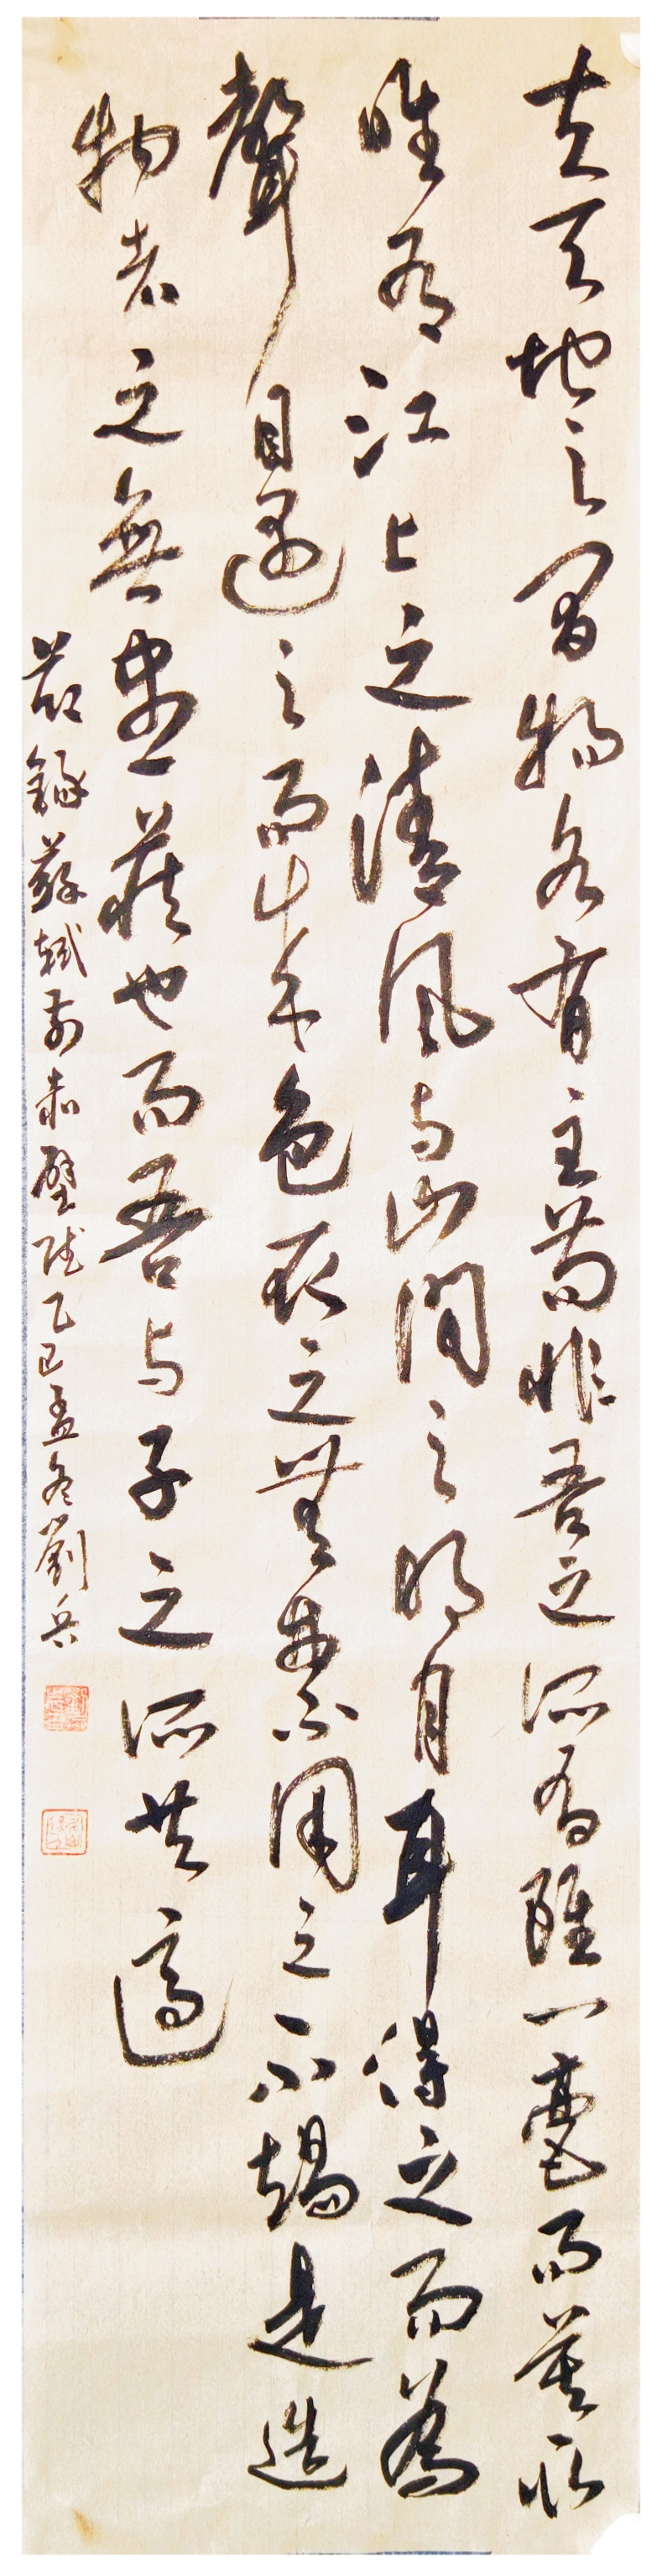 夫天地之間物各有主苟非吾之所有雖一毫而莫取
唯有江上之清風与山間之明月耳得之而為
聲目遇之而成色取之無禁用之不竭是造
物者之無盡藏也而吾与子之所共適
節錄蘇軾前赤壁賦乙巳孟冬劉兵